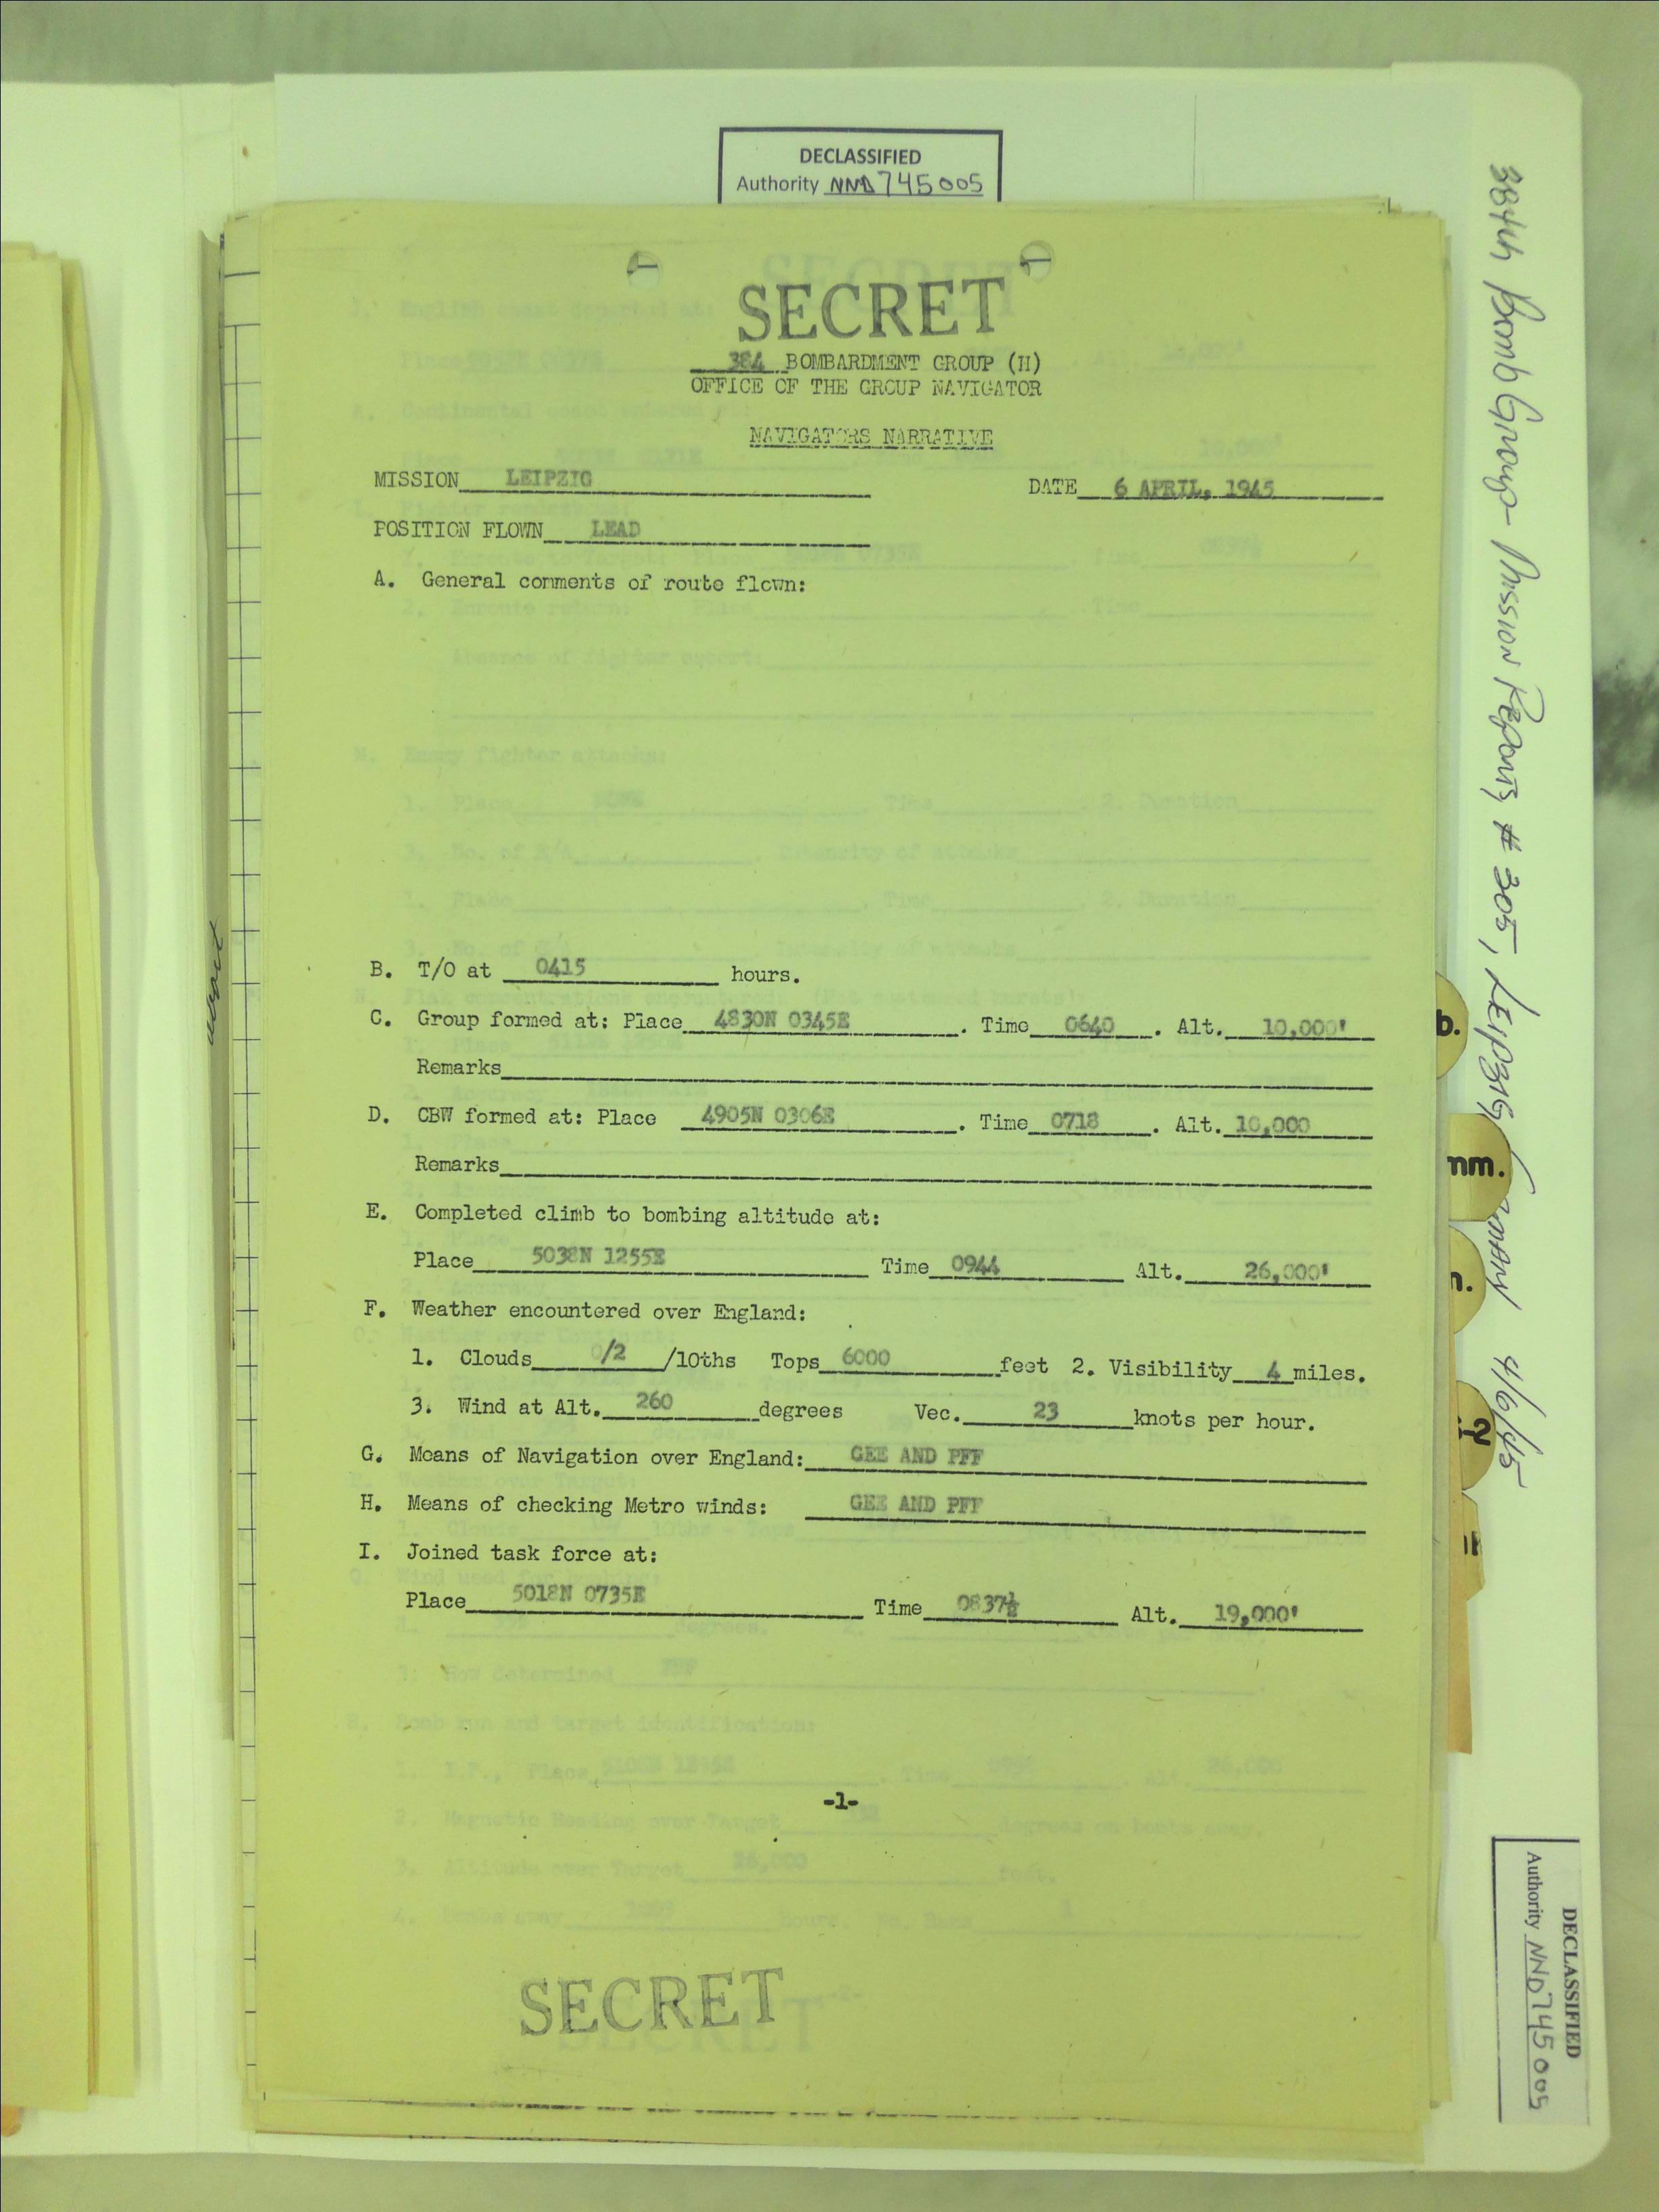 DECLASSIFIED
Authority NND 745005
SECRET
384 BOMBARDMENT GROUP (H)
OFFICE OF THE GROUP NAVIGATOR
NAVIGATORS NARRATIVE
MISSION LEIPZIG DATE 6 APRIL, 1945
POSITION FLOWN LEAD
A. General comments of route flown:
B. T/O at 0415 hours.
C. Group formed at: Place 4830N 0345E . Time 0640 . Alt. 10,000'
Remarks
D. CBW formed at: Place 4905N 0306E . Time 0718 . Alt. 10,000
Remarks
E. Completed climb to bombing altitude at:
Place 5038N 1255E Time 0944 Alt. 26,000'
F. Weather encountered over England:
1. Clouds 0/2 /10ths Tops 6000 feet 2. Visibility 4 miles.
3. Wind at Alt. 260 degrees Vec. 23 knots per hour.
G. Means of Navigation over England: GEE AND PFF
H. Means of checking Metro winds: GEE AND PFF
I. Joined task force at:
Place 5018N 0735E Time 0837½ Alt. 19,000'
-1-
SECRET
384th Bomb Group - Mission Reports # 305, Leipzig, 4/6/45
b.
mm.
-2
DECLASSIFIED
Authority NND 745005